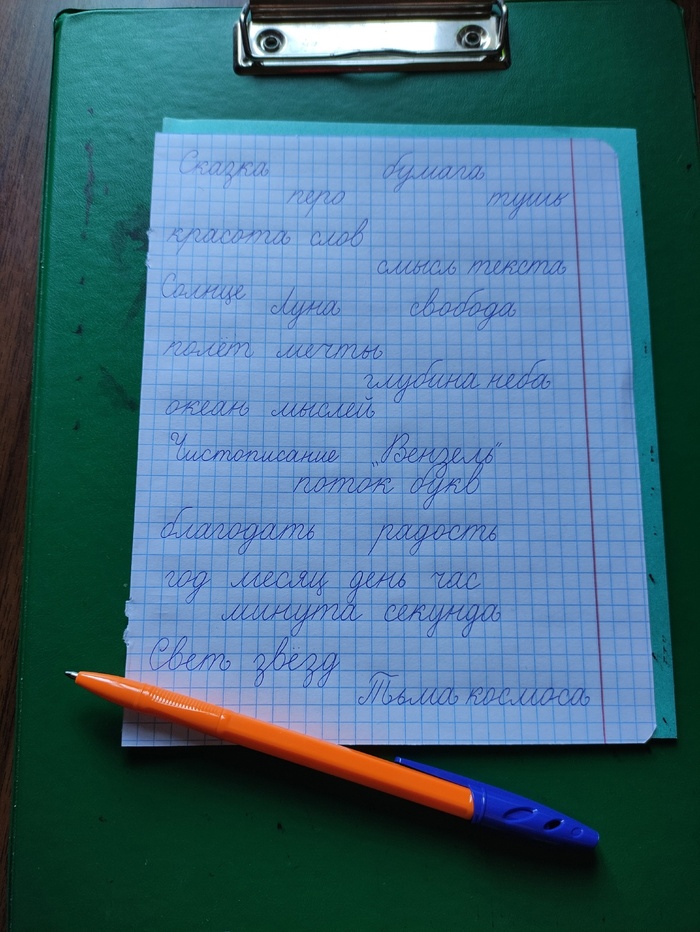 Сказка бумага
перо тушь
красота слов
смысль текста
Солнце Луна свобода
полёт мечты
глубина неба
океан мыслей
Чистописание „Вензель"
поток букв
благодать радость
год месяц день час
минута секунда
Светь звёзд
Тьма космоса